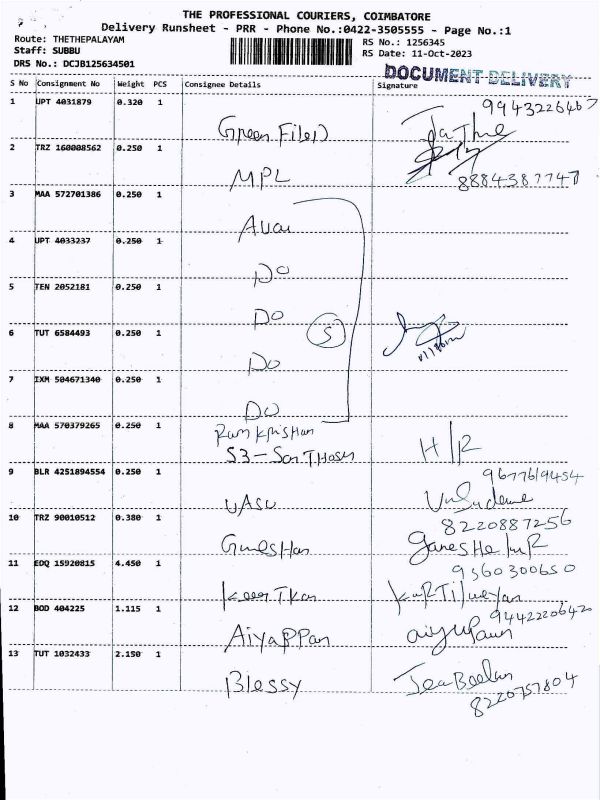 THE PROFESSIONAL COURIERS, COIMBATORE
Delivery Runsheet - PRR - Phone No.:0422-3505555 - Page No.:1
Route: THETHEPALAYAM
Staff: SUBBU
DRS No.: DCJB125634501
RS No.: 1256345
RS Date: 11-Oct-2023
DOCUMENT DELIVERY
S No Consignment No Weight PCS Consignee Details Signature
1 UPT 4031879 0.320 1 Green File 9943226467
2 TRZ 160008562 0.250 1 MPL 8884387747
3 MAA 572701386 0.250 1
4 UPT 4033237 0.250 1 Do
5 TEN 2052181 0.250 1 Do
6 TUT 6584493 0.250 1 Do 5
7 IXM 504671340 0.250 1 Do
8 MAA 570379265 0.250 1 Ramkrishan
S3-SanThosh H/R
9 BLR 4251894554 0.250 1 VASU 9677619454
10 TRZ 90010512 0.380 1 8220887256
Ganeshan
11 EDQ 15920815 4.450 1 9360300650
12 BOD 404225 1.115 1 AiyaPPan 9442220642
13 TUT 1032433 2.150 1 Blessy
8220757804